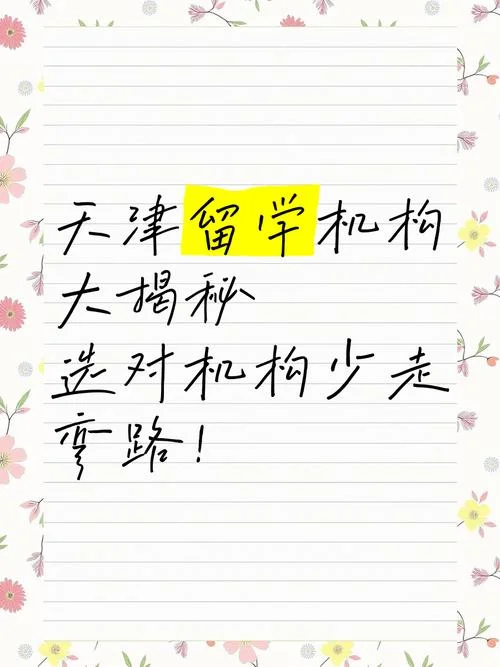 天津留学机构
大揭秘
选对机构少走
弯路！